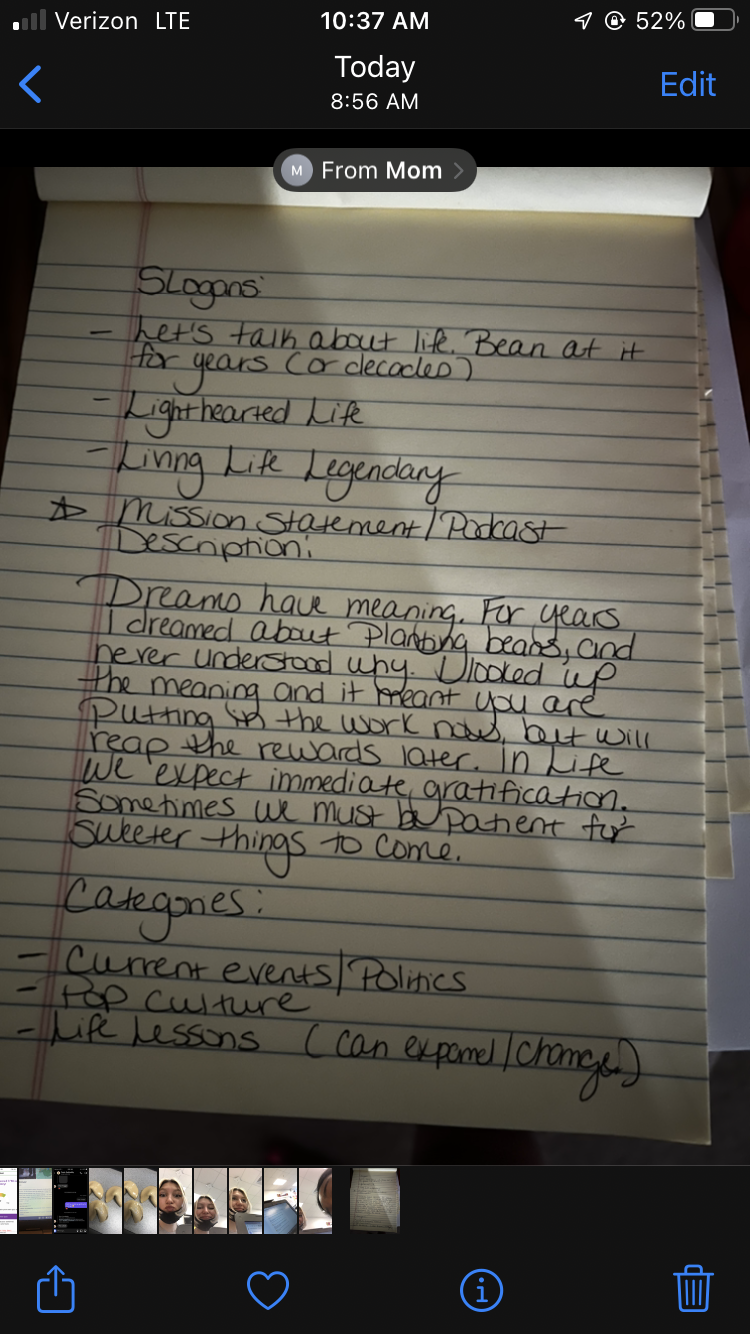 Verizon LTE 10:37 AM 52%
Today
8:56 AM
Edit
M From Mom
Slogans:
- Let's talk about life. Bean at it
for years (or decades)
- Lighthearted Life
- Living Life Legendary
☆ Mission Statement/Podcast
Description:
Dreams have meaning. For years
I dreamed about planting beans, and
never understood why. I looked up
the meaning and it meant you are
putting in the work now, but will
reap the rewards later. In Life
we expect immediate gratification.
Sometimes we must be patient for
sweeter things to come.
Categories:
- Current events/Politics
- Pop culture
- Life Lessons (can expand/change)